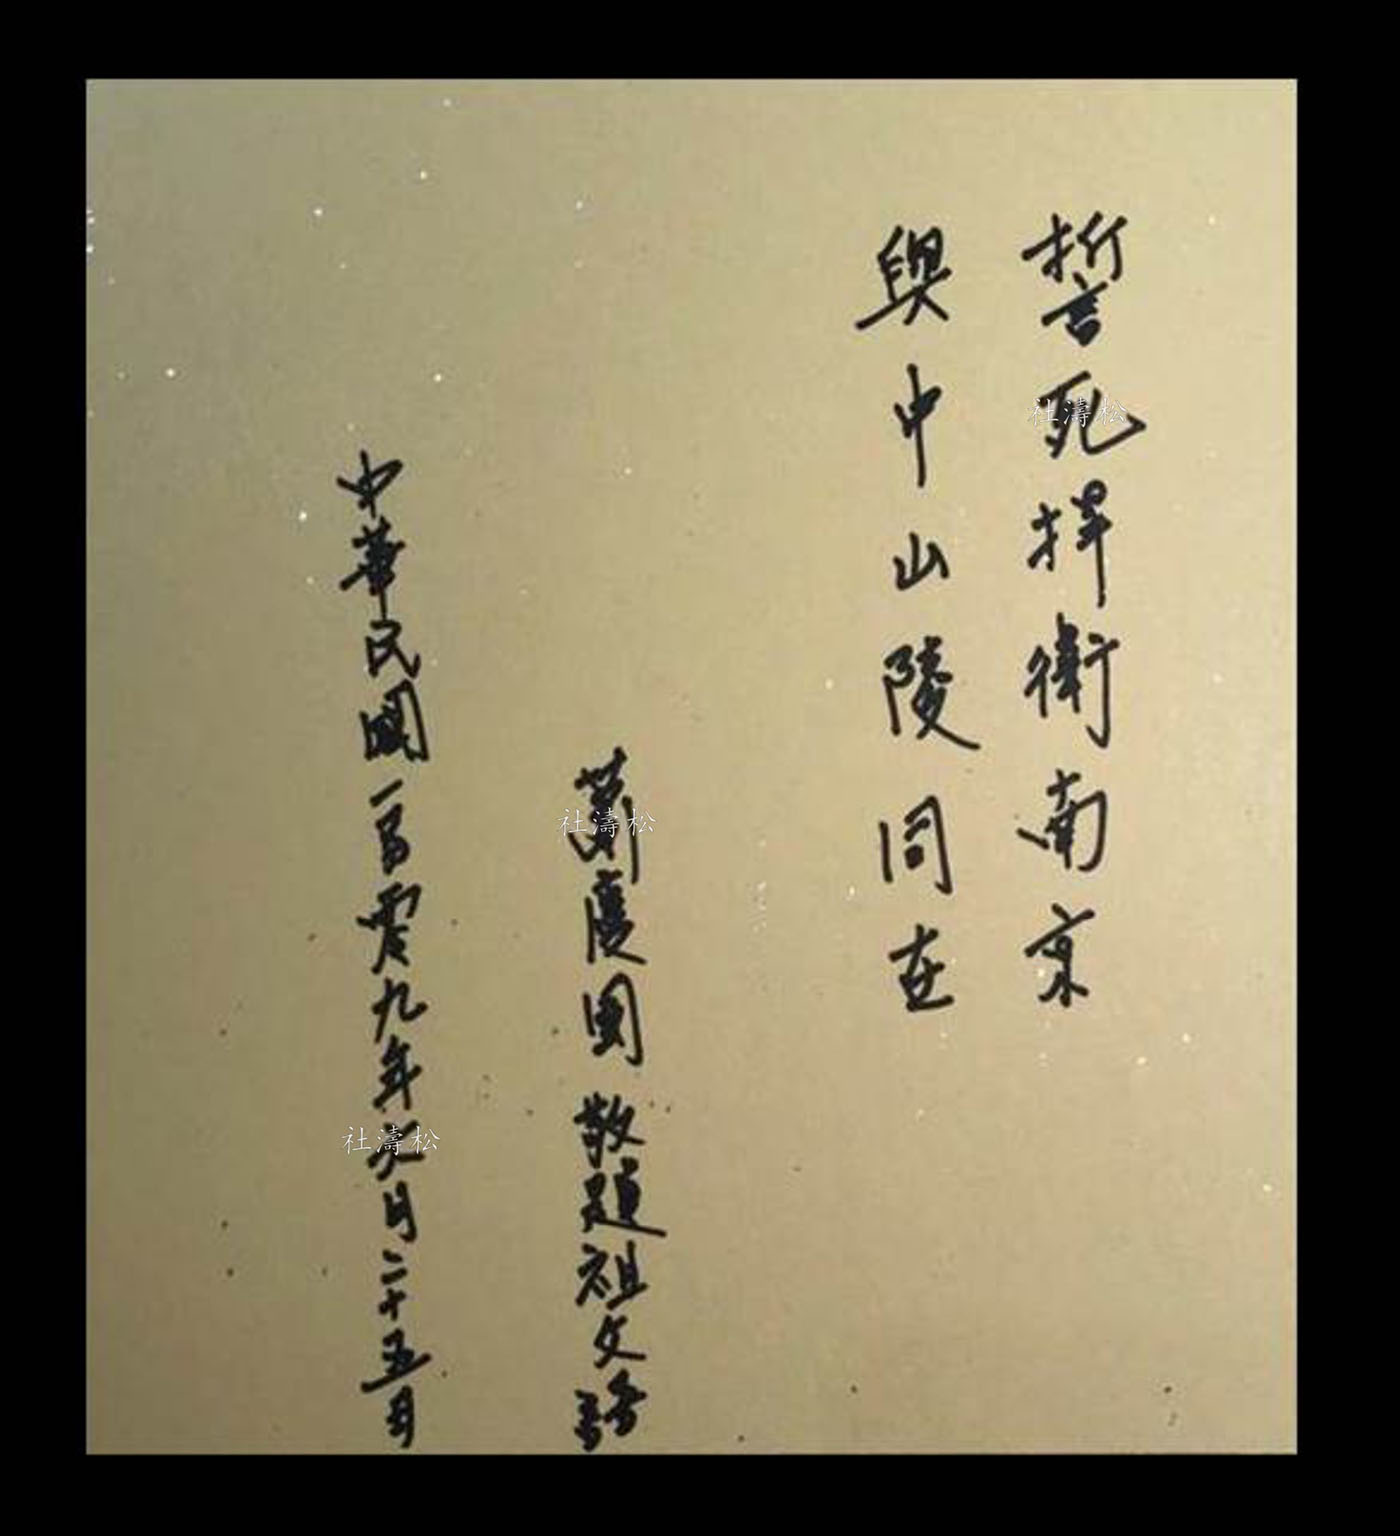 誓死捍衛南京
與中山陵同在
蕭慶國 敬題祖父語
中華民國一百零九年月二十五日
社濤松
社濤松
社濤松